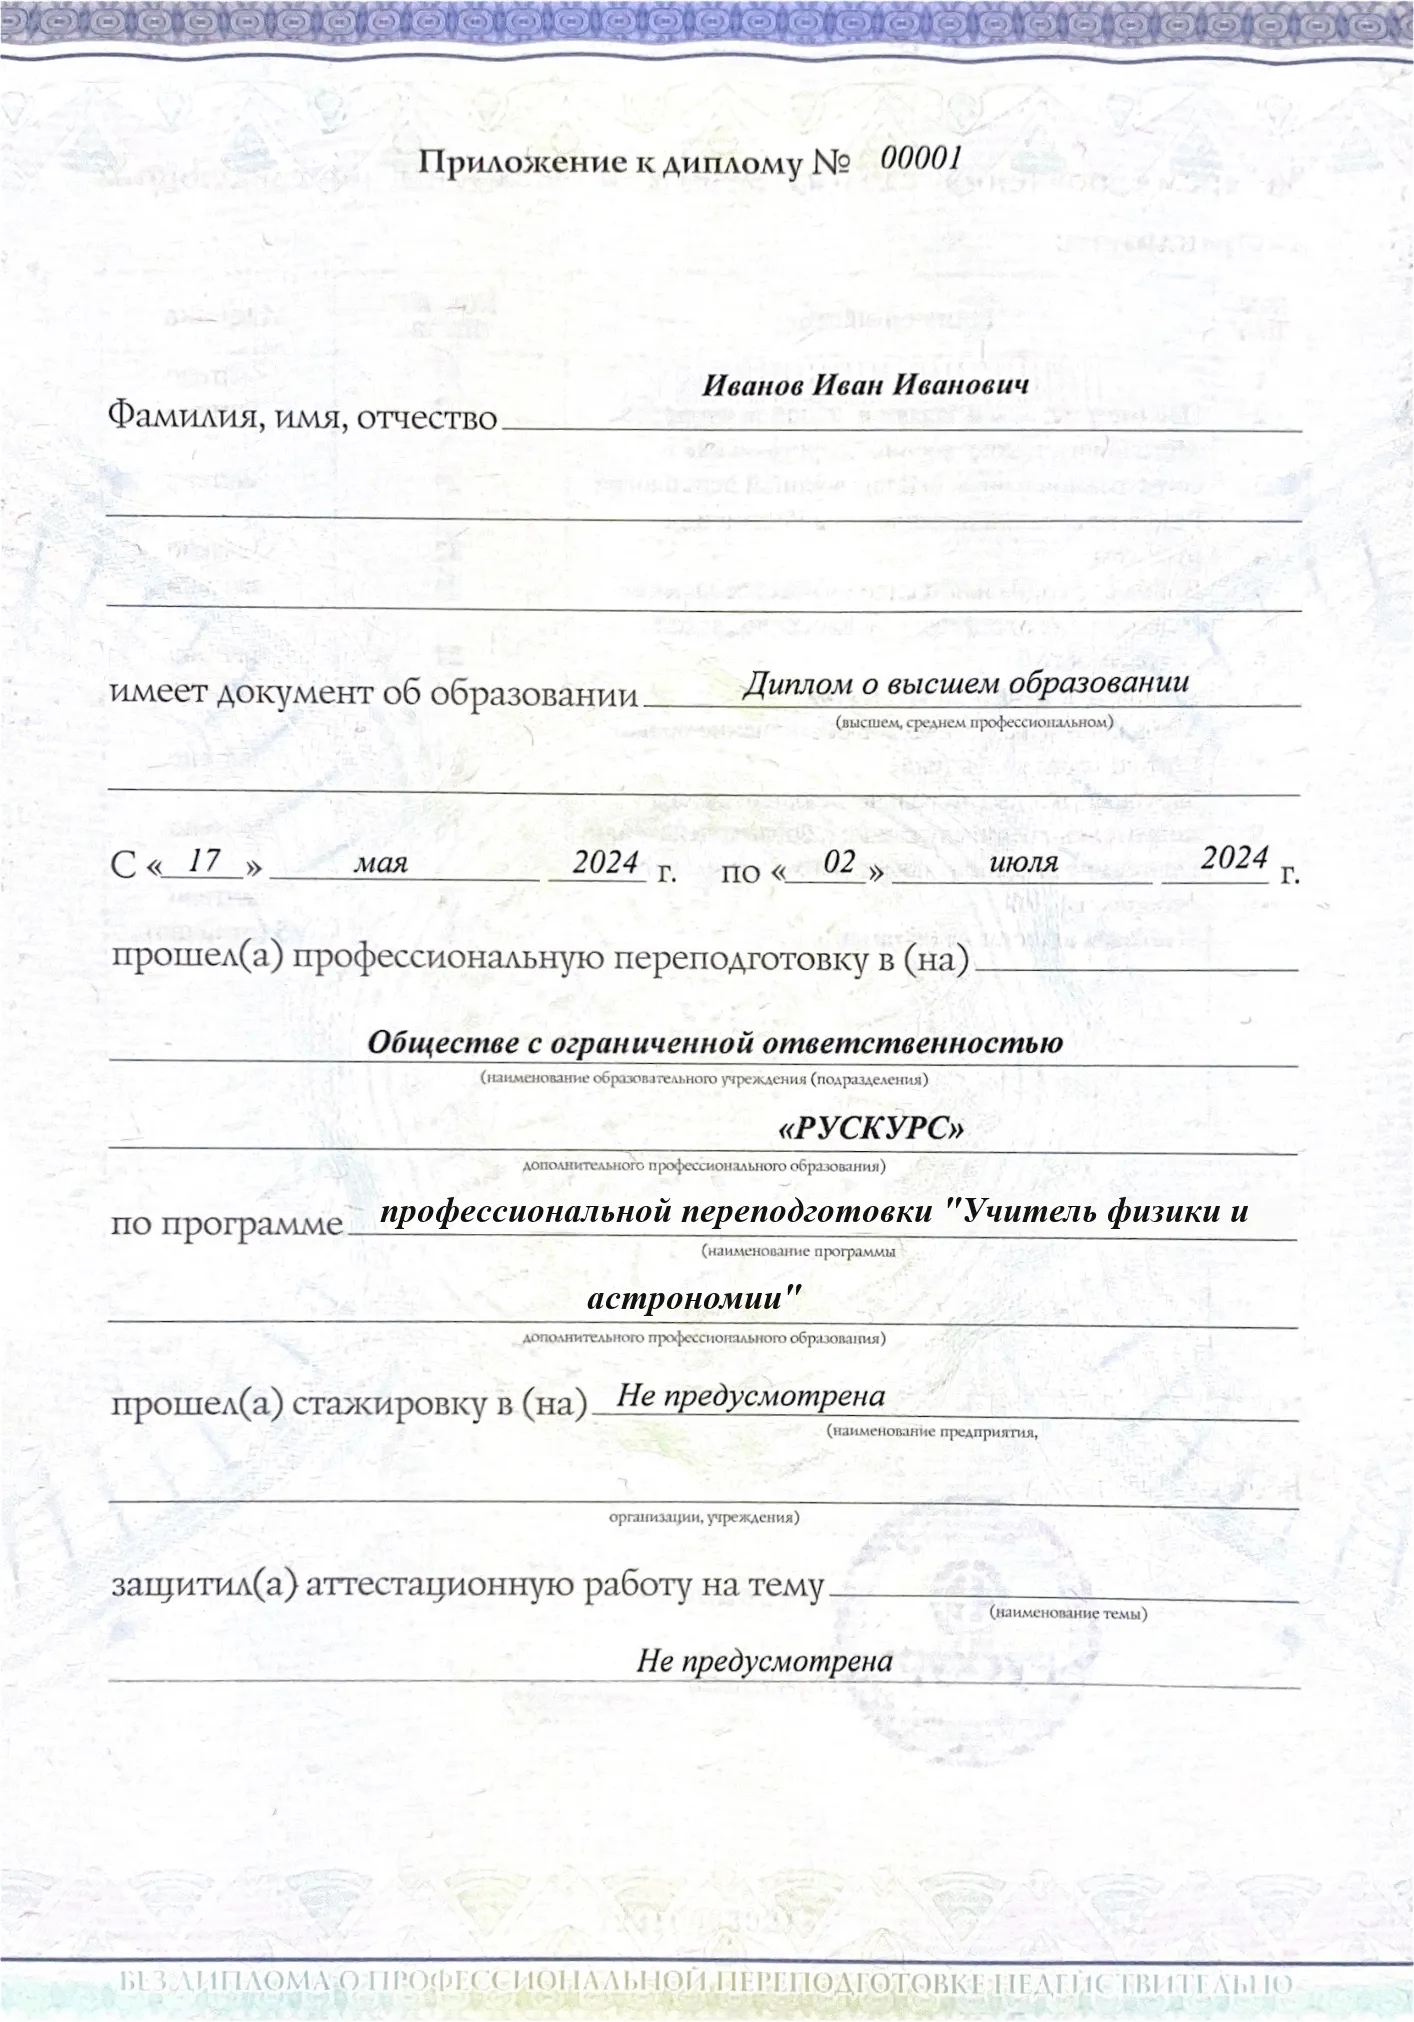 Приложение к диплому № 00001
Иванов Иван Иванович
Фамилия, имя, отчество
имеет документ об образовании Диплом о высшем образовании
(высшем, среднем профессиональном)
С « 17 » мая 2024 г. по « 02 » июля 2024 г.
прошел(а) профессиональную переподготовку в (на)
Обществе с ограниченной ответственностью
(наименование образовательного учреждения (подразделения)
«РУСКУРС»
дополнительного профессионального образования)
по программе профессиональной переподготовки "Учитель физики и
(наименование программы
астрономии"
дополнительного профессионального образования)
прошел(а) стажировку в (на) Не предусмотрена
(наименование предприятия,
организации, учреждения)
защитил(а) аттестационную работу на тему
(наименование темы)
Не предусмотрена
БЕЗ ДИПЛОМА О ПРОФЕССИОНАЛЬНОЙ ПЕРЕПОДГОТОВКЕ НЕДЕЙСТВИТЕЛЬНО